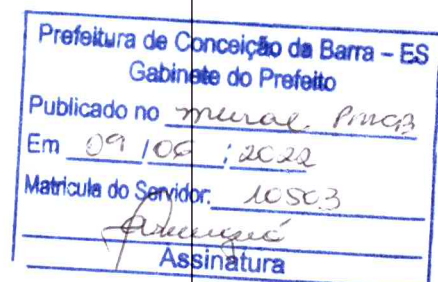 Prefeitura de Conceição da Barra – ES
Gabinete do Prefeito
Publicado no mural PMCB
Em 09 / 06 / 2022
Matricula do Servidor: 10503
Assinatura